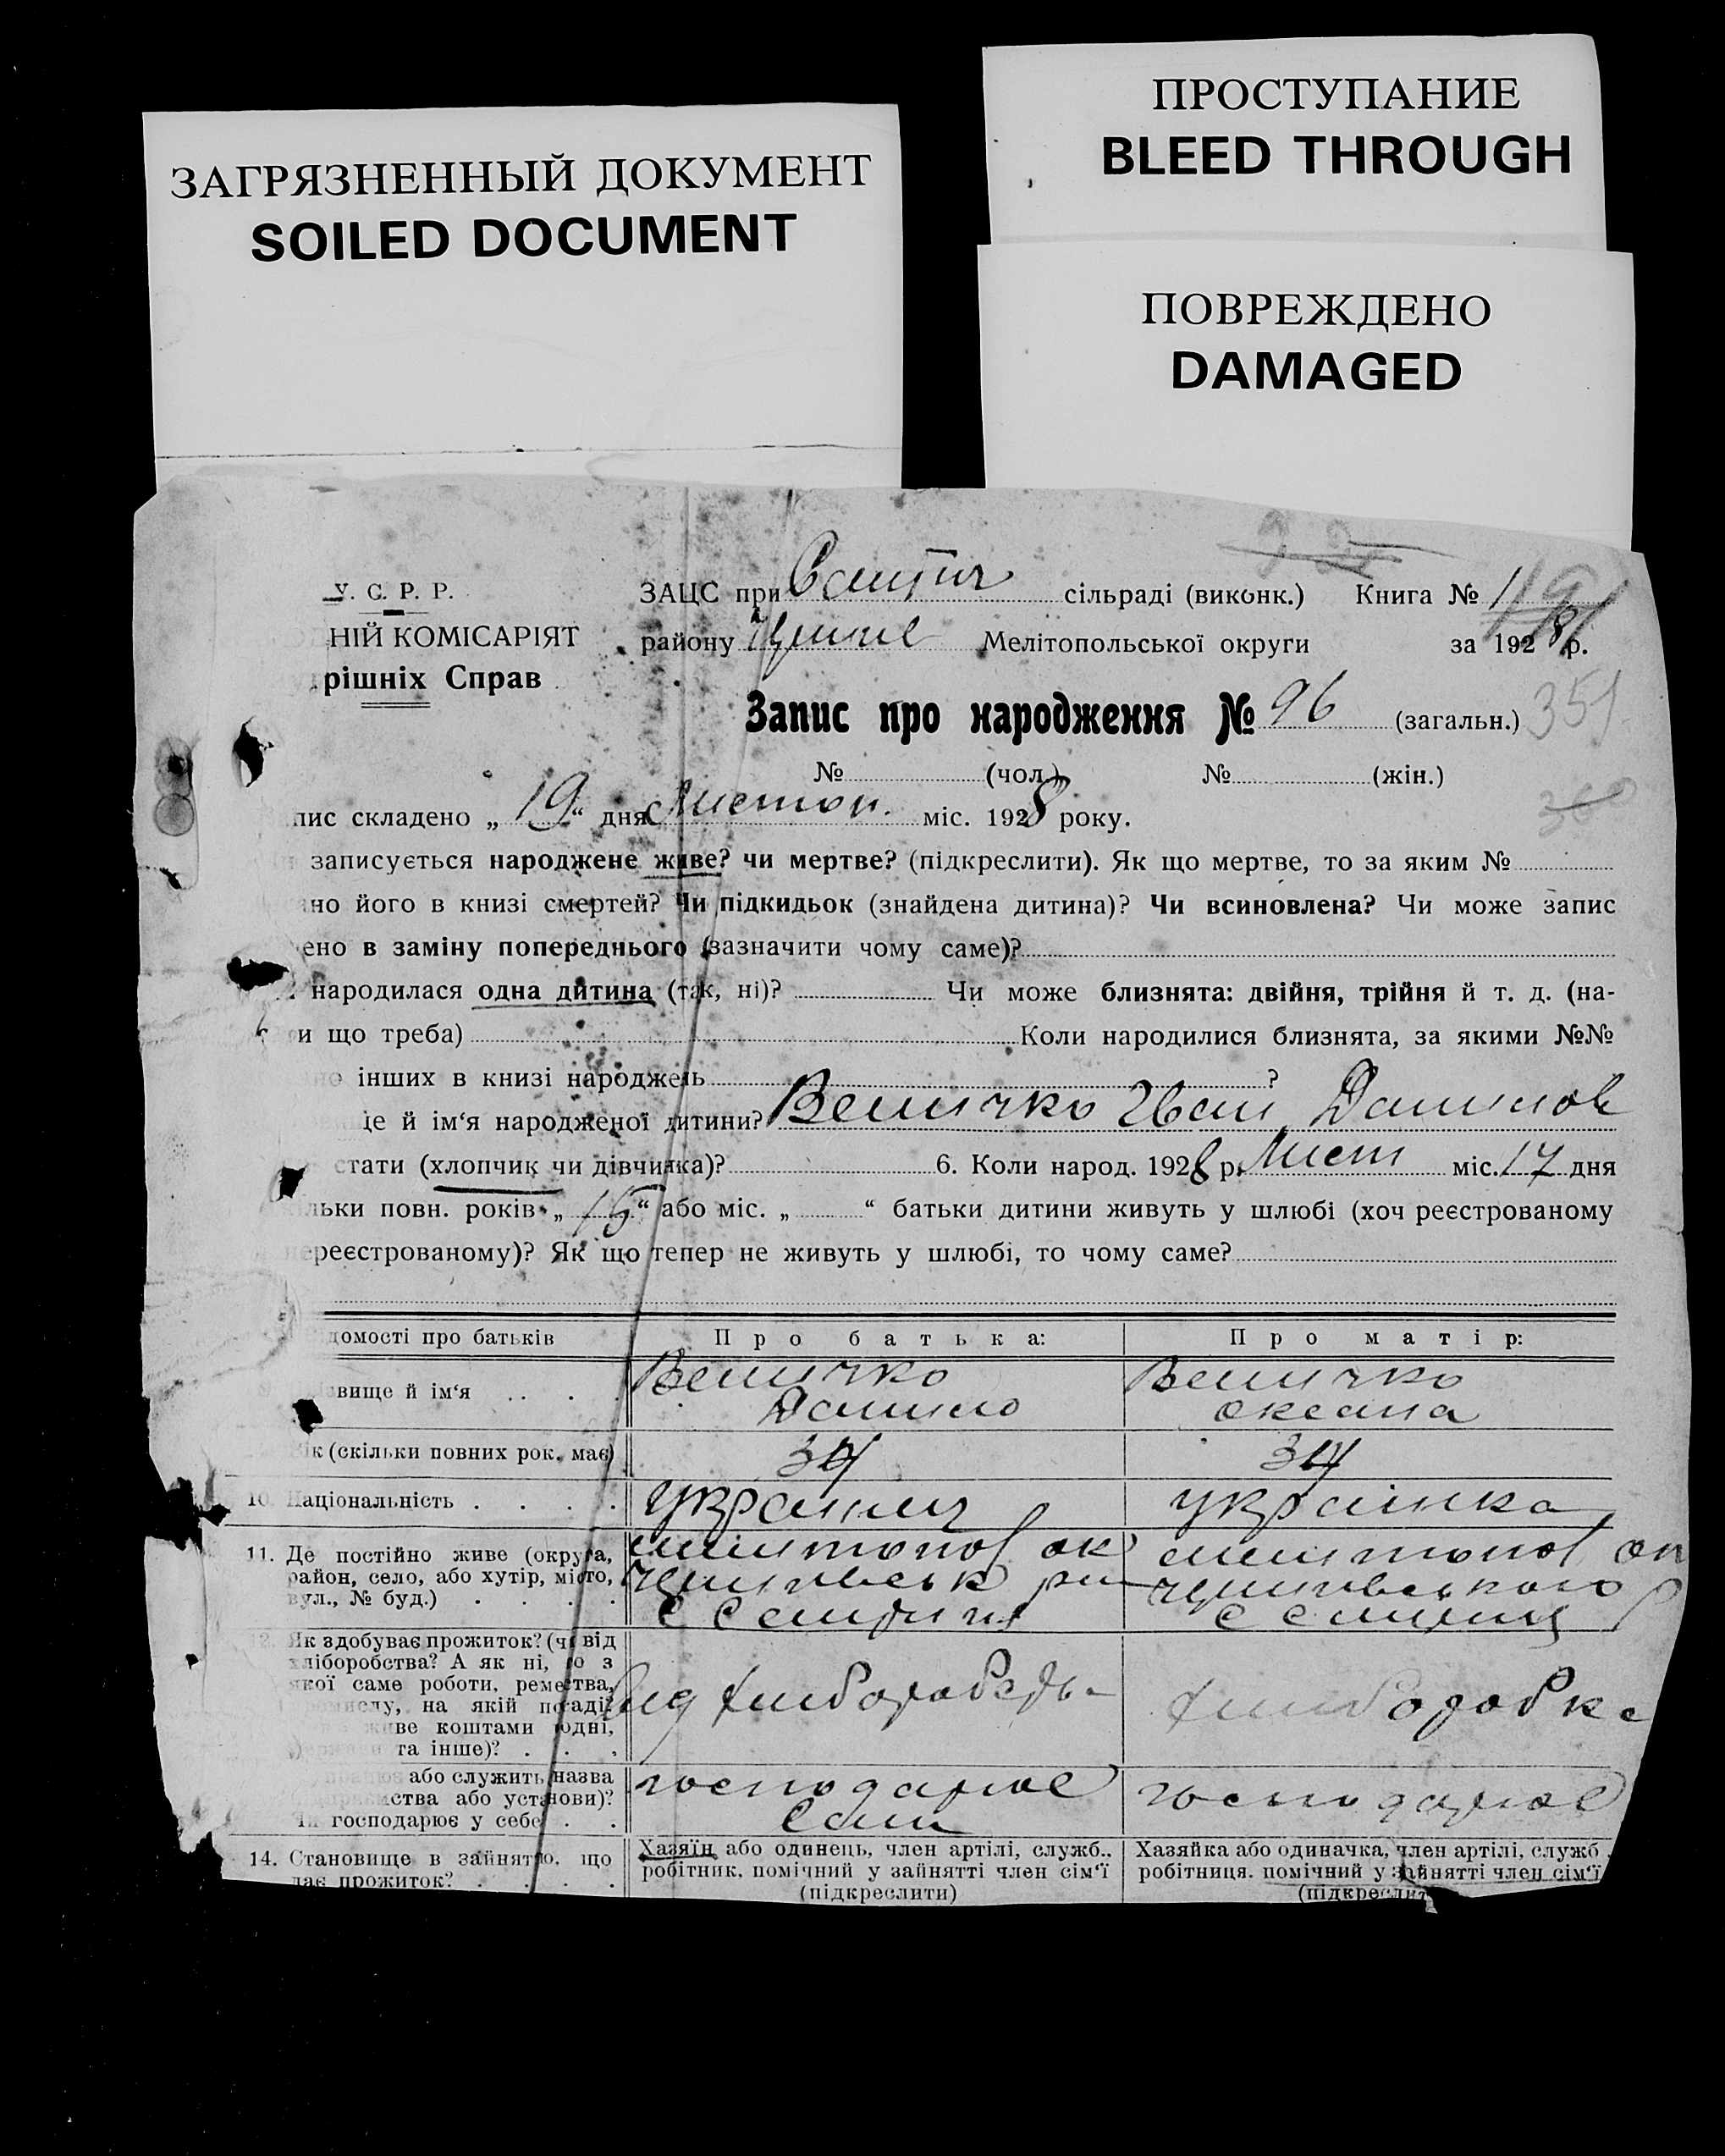 ПРОСТУПАНИЕ
BLEED THROUGH
ЗАГРЯЗНЕННЫЙ ДОКУМЕНТ
SOILED DOCUMENT
ПОВРЕЖДЕНО
DAMAGED
У. С. Р. Р.
НІЙ КОМІСАРІЯТ
рішніх Справ
ЗАЦС при сільраді (виконк.) Книга № 1
району Мелітопольської округи за 1928 р.
Запис про народження № 96 (загальн.) 351
№ (чол.) № (жін.)
пис складено „ 19 “ дня Листоп. міс. 1928 року.
записується народжене живе? чи мертве? (підкреслити). Як що мертве, то за яким №
но його в книзі смертей? Чи підкидьок (знайдена дитина)? Чи всиновлена? Чи може запис
ено в заміну попереднього (зазначити чому саме)?
народилася одна дитина (так, ні)? Чи може близнята: двійня, трійня й т. д. (на-
и що треба) Коли народилися близнята, за якими №№
но інших в книзі народжень ?
ще й ім‘я народженої дитини? Величко Іван Данилов
стати (хлопчик чи дівчинка)? 6. Коли народ. 1928 р. Лист міс. 17 дня
льки повн. років „ 15 “ або міс. „ “ батьки дитини живуть у шлюбі (хоч реєстрованому
нереєстрованому)? Як що тепер не живуть у шлюбі, то чому саме?
домості про батьків Про батька: Про матір:
вище й ім‘я Величко Данило Величко Оксана
ік (скільки повних рок. має) 34 34
10. Національність українець українка
11. Де постійно живе (округа,
район, село, або хутір, місто,
вул., № буд.)
12. Як здобуває прожиток? (чи від
хліборобства? А як ні, то з
якої саме роботи, ремества,
на якій посаді?
живе коштами
та інше)?
хлиборобка
або служить, назва
ства або установи)?
господарює у себе
господарює
сам
господарює
14. Становище в зайнятю, що
дає прожиток?
Хазяїн або одинець, член артілі, служб.,
робітник, помічний у зайнятті член сім‘ї
(підкреслити)
Хазяйка або одиначка, член артілі, служб.
робітниця, помічний у зайнятті член сім‘ї
(підкреслит